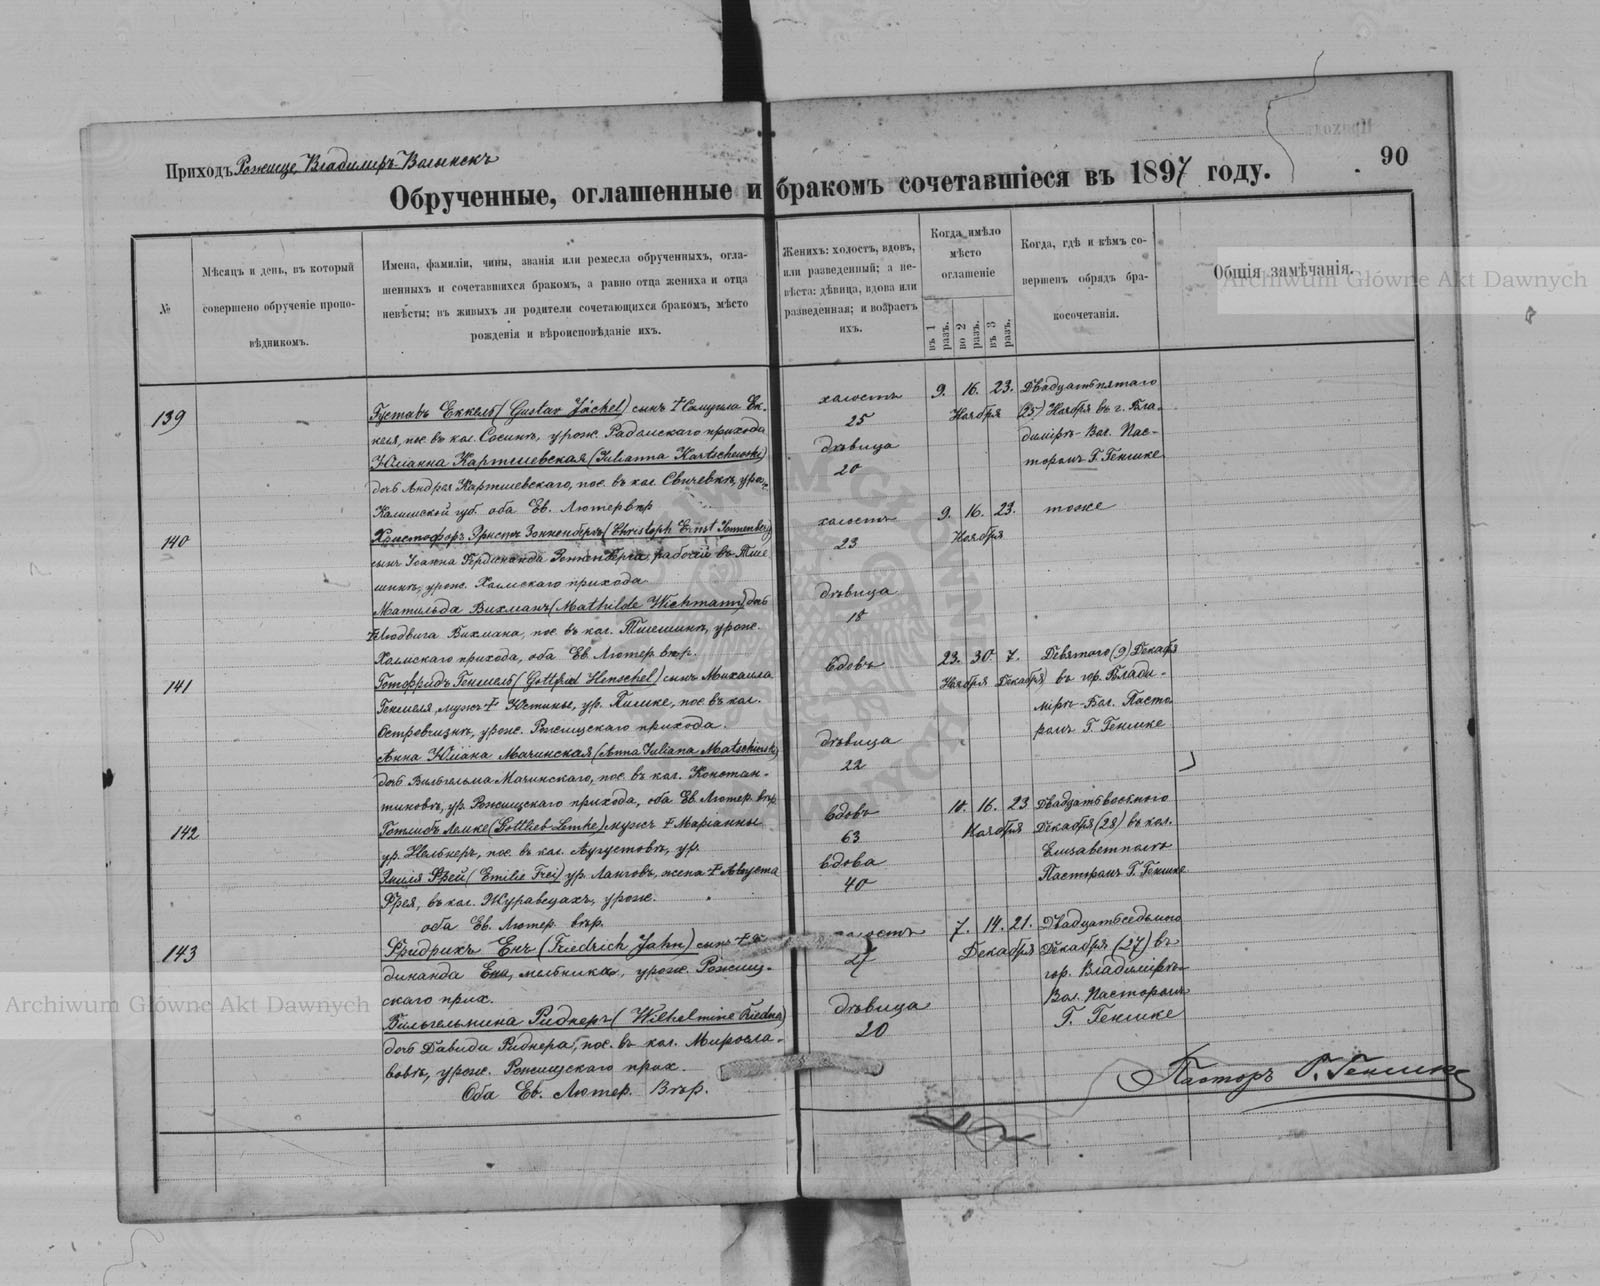 Приходъ Рожище, Владимиръ-Волынскъ
90
Обрученные, оглашенные и бракомъ сочетавшіеся въ 1897 году.
№
Мѣсяцъ и день, въ который
совершено обрученіе пропо-
вѣдникомъ.
Имена, фамиліи, чины, званія или ремесла обрученныхъ, огла-
шенныхъ и сочетавшихся бракомъ, а равно отца жениха и отца
невѣсты; въ живыхъ ли родители сочетающихся бракомъ, мѣсто
рожденія и вѣроисповѣданіе ихъ.
Женихъ: холостъ, вдовъ,
или разведенный; а не-
вѣста: дѣвица, вдова или
разведенная; и возрастъ
ихъ.
Когда имѣло
мѣсто
оглашеніе
въ 1 разъ.
во 2 разъ.
въ 3 разъ.
Когда, гдѣ и кѣмъ со-
вершенъ обрядъ бра-
косочетанія.
Общія замѣчанія.
Archiwum Główne Akt Dawnych
139
Густавъ Еккель (Gustav Jäckel) сынъ † Самуила Ек-
келя, пос. въ кол. Сосинѣ, урож. Радомскаго прихода
Юліанна Картшевская (Julianna Kartschewski)
дочь Андрея Картшевскаго, пос. въ кол. Свичевкѣ, урож.
Калишской губ. оба Ев. Лютер. вѣр
холостъ
25
дѣвица
20
9. 16. 23.
Ноября
Двадцатьпятаго
(25) Ноября въ г. Вла-
димірѣ-Вол. Пас-
торомъ Г. Геншке
140
Христофоръ Эрнстъ Зонненбергъ (Christoph Ernst Sonnenberg)
сынъ Іоанна Фердинанда Зонненберга, рабочій въ Тше
шинѣ, урож. Холмскаго прихода
Матильда Вихманъ (Mathilde Wichmann) дочь
† Людвига Вихмана, пос. въ кол. Тшешинѣ, урож.
Холмскаго прихода, оба Ев. Лютер. вѣр.
холостъ
23
дѣвица
18
9. 16. 23.
Ноября
тоже
141
Готфридъ Геншель (Gottfried Henschel) сынъ Михаила
Геншеля, мужъ † Юстины, ур. Тишке, пос. въ кол.
Островщинѣ, урож. Рожищскаго прихода.
Анна Юліана Мачинская (Anna Juliana Matschinski)
дочь Вильгельма Мачинскаго, пос. въ кол. Констан-
тиновкѣ, ур. Рожищскаго прихода, оба Ев. Лютер. вѣр.
вдовъ
дѣвица
22
23. 30. 7.
Ноября Декабря
Девятого (9) Декабря
въ гор. Влади-
мірѣ-Вол. Пасто-
ромъ Г. Геншке
142
Готлибъ Лемке (Gottlieb Lemke) мужъ † Маріанны
ур. Нельнеръ, пос. въ кол. Августовкѣ, ур.
Эмилія Фрей (Emilie Frei) ур. Ланговъ, жена † Августа
Фрея, въ кол. Журавецахъ, урож.
оба Ев. Лютер. вѣр.
вдовъ
63
вдова
40
10. 16. 23
Ноября
Двадцатьвосьмого
Декабря (28) въ кол.
Елизаветполѣ
Пасторомъ Г. Геншке
143
Фридрихъ Енъ (Friedrich Jahn) сынъ †
динанда Ена, мельника, урож. Рожищ-
скаго прих.
Вильгельмина Риднеръ (Wilhelmine Riedner)
дочь Давида Риднера, пос. въ кол. Миросла-
вовкѣ, урож. Рожищскаго прих.
Оба Ев. Лютер. Вѣр.
холостъ
27
дѣвица
20
7. 14. 21.
Декабря
Двадцатьседьмого
Декабря (27) въ
гор. Владимірѣ-
Вол. Пасторомъ
Г. Геншке
Archiwum Główne Akt Dawnych
Пасторъ Г. Геншке